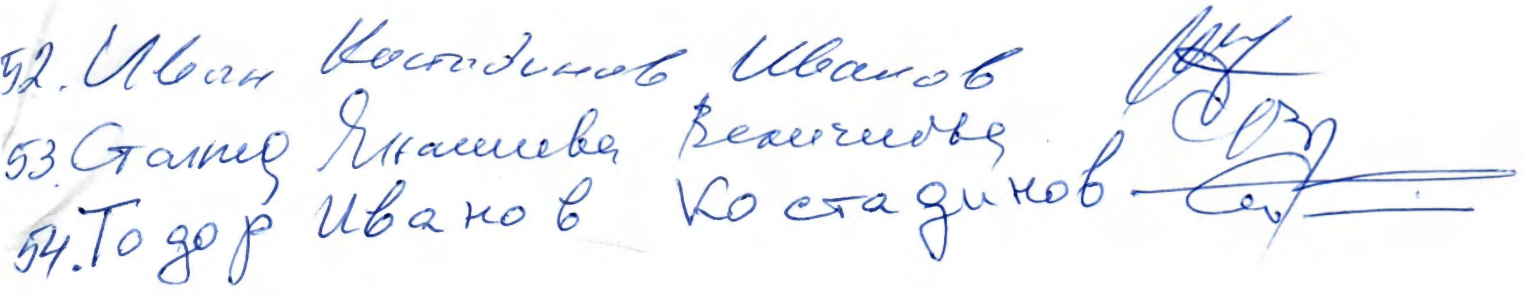 52. Иван Костадинов Иванов
53. Янашева Величкова
54. Тодор Иванов Костадинов